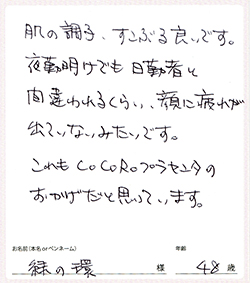 肌の調子、すこぶる良いです。
夜勤明けでも日勤者と
間違われるくらい、顔に疲れが
出ていないみたいです。
これもCoCoRoプラセンタの
おかげだと思っています。
お名前(本名orペンネーム) 年齢
緑の環 様 48 歳